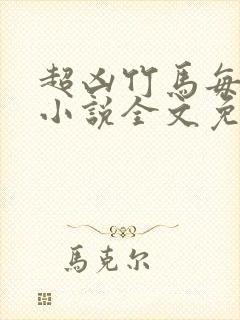 超凶竹馬每
小說全文免
馬克尔